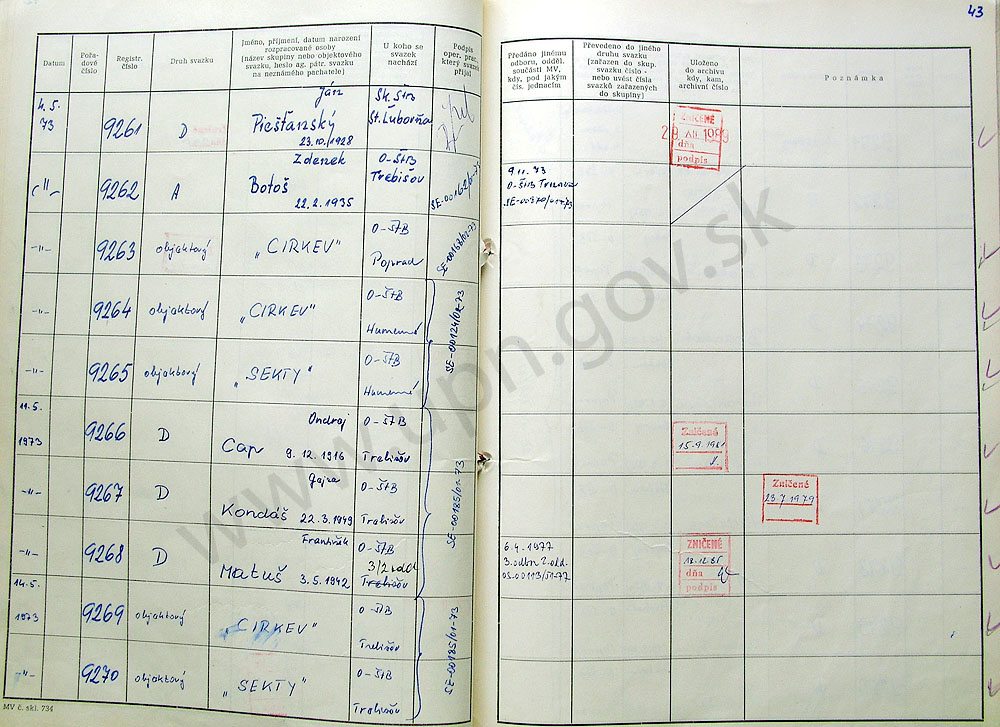 43
Datum
Pořadové číslo
Registr. číslo
Druh svazku
Jméno, příjmení, datum narození
rozpracované osoby
(název skupiny nebo objektového
svazku, heslo ag. pátr. svazku
na neznámého pachatele)
U koho se
svazek
nachází
Podpis
oper. prac.,
který svazek
přijal
Předáno jinému
odboru, odděl.
součásti MV,
kdy, pod jakým
čís. jednacím
Převedeno do jiného
druhu svazku
(zařazen do skup.
svazku číslo -
nebo uvést čísla
svazků zařazených
do skupiny)
Uloženo
do archivu
kdy, kam,
archivní číslo
Poznámka
4. 5.
73
9261
D
Ján
Piešťanský
23.10.1928
Sk. ŠtB
St. Ľubovňa
ZNIČENÉ
28. XII. 1989
dňa
podpis
-"-
9262
A
Zdenek
Botoš
22. 2. 1935
O-ŠtB
Trebišov
SE-00162/01-73
9.11. 73
O-ŠtB Trnava
-"-
9263
objaktový
„CIRKEV"
O-ŠtB
Poprad
SE-00168/02-73
-"-
9264
objaktový
„CIRKEV"
O-ŠtB
Humenné
SE-00124/02-73
-"-
9265
objaktový
„SEKTY"
O-ŠtB
Humenné
11.5.
1973
9266
D
Ondrej
Cap
9. 12. 1916
O-ŠtB
Trebišov
SE-00185/01-73
Zničené
15.9.1981
-"-
9267
D
Kondáš 22.3.1949
O-ŠtB
Trebišov
Zničené
23.7.1979
-"-
9268
D
František
Matuš 3.5.1942
O-ŠtB
3/2 odd
Trebišov
6.4. 1977
3. odbor 2. odd.
OS-00113/51-77
ZNIČENÉ
dňa
podpis
14.5.
1973
9269
objaktový
„CIRKEV"
O-ŠtB
Trebišov
SE-00185/01-73
-"-
9270
objaktový
„SEKTY"
O-ŠtB
Trebišov
MV č. skl. 734
www.upn.gov.sk